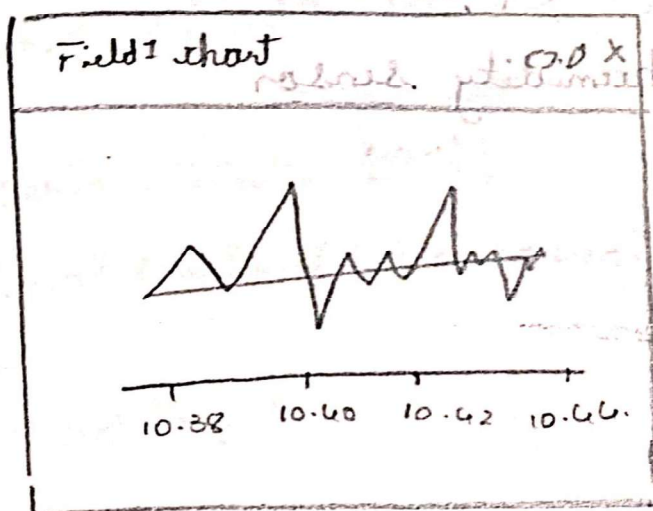 Field 1 chart
10.38 10.40 10.42 10.44.